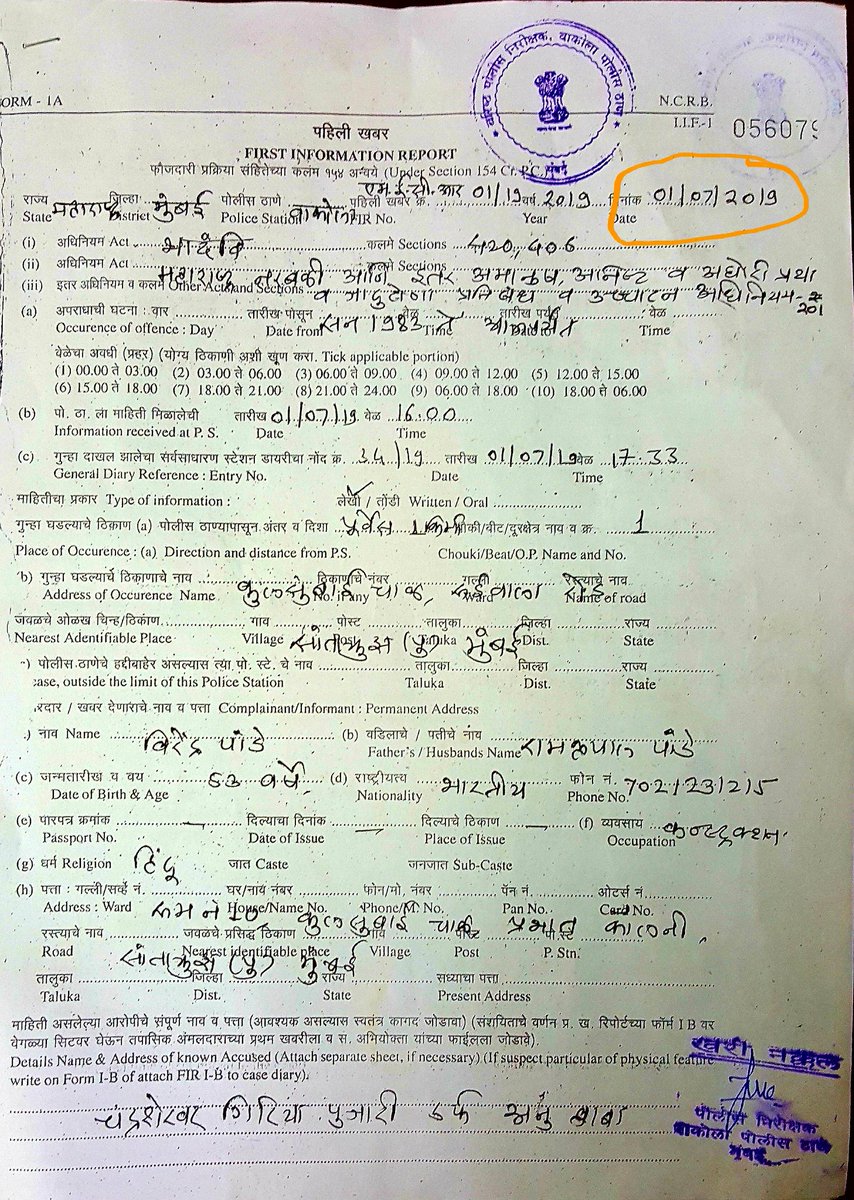 वरिष्ठ पोलीस निरीक्षक, वाकोला पोलीस ठाणे
मुंबई
FORM - 1A
N.C.R.B.
I.I.F.-1
056079
पहिली खबर
FIRST INFORMATION REPORT
फौजदारी प्रक्रिया संहितेच्या कलम १५४ अन्वये (Under Section 154 Cr. P.C.)
एम.ई.सी.आर
राज्य महाराष्ट्र जिल्हा मुंबई पोलीस ठाणे वाकोला पहिली खबर क्र. 01/19 वर्ष 2019 दिनांक 01/07/2019
State District Police Station FIR No. Year Date
(i) अधिनियम Act भादंवि कलमे Sections 420, 406
(ii) अधिनियम Act कलमे Sections
महाराष्ट्र नरबळी आणि इतर अमानुष, अनिष्ट व अघोरी प्रथा
(iii) इतर अधिनियम व कलमे Other Acts and Sections व जादुटोणा प्रतिबंध व उच्चाटन अधिनियम-
(a) अपराधाची घटना : वार तारीख पासून वेळ तारीख पर्यंत वेळ
सन 1983 ते
Occurence of offence : Day Date from Time Time
वेळेचा अवधी (प्रहर) (योग्य ठिकाणी अशी खूण करा. Tick applicable portion)
(1) 00.00 ते 03.00 (2) 03.00 ते 06.00 (3) 06.00 ते 09.00 (4) 09.00 ते 12.00 (5) 12.00 ते 15.00
(6) 15.00 ते 18.00 (7) 18.00 ते 21.00 (8) 21.00 ते 24.00 (9) 06.00 ते 18.00 (10) 18.00 ते 06.00
(b) पो. ठा. ला माहिती मिळालेची तारीख 01/07/19 वेळ 16.00
Information received at P. S. Date Time
(c) गुन्हा दाखल झालेचा सर्वसाधारण स्टेशन डायरीचा नोंद क्र. 34/19 तारीख 01/07/19 वेळ 17.33
General Diary Reference : Entry No. Date Time
माहितीचा प्रकार Type of information : लेखी / तोंडी Written / Oral
गुन्हा घडल्याचे ठिकाण (a) पोलीस ठाण्यापासून अंतर व दिशा पूर्वेस 1 किमी चौकी/बीट/दूरक्षेत्र नाव व क्र. 1
Place of Occurence : (a) Direction and distance from P.S. Chouki/Beat/O.P. Name and No.
b) गुन्हा घडल्याचे ठिकाणाचे नाव ठिकाणाचे नंबर गल्ली रस्त्याचे नाव
कुलसुबाई चाळ, रोड
Address of Occurence Name No. if any Ward Name of road
जवळचे ओळख चिन्ह/ठिकाण गाव पोस्ट तालुका जिल्हा राज्य
सांताक्रुझ (पु) मुंबई
Nearest Adentifiable Place Village Taluka Dist. State
पोलीस ठाणेचे हद्दीबाहेर असल्यास त्या पो. स्टे. चे नाव तालुका जिल्हा राज्य
case, outside the limit of this Police Station Taluka Dist. State
रदार / खबर देणाराचे नाव व पत्ता Complainant/Informant : Permanent Address
) नाव Name विरेंद्र पांडे (b) वडिलाचे / पतीचे नाव
Father's / Husbands Name रामकृपाल पांडे
(c) जन्मतारीख व वय 53 वर्षे (d) राष्ट्रीयत्त्व भारतीय फोन नं. 7021231215
Date of Birth & Age Nationality Phone No.
(e) पारपत्र क्रमांक — दिल्याचा दिनांक — दिल्याचे ठिकाण — (f) व्यवसाय कन्स्ट्रक्शन
Passport No. Date of Issue Place of Issue Occupation
(g) धर्म Religion हिंदू जात Caste जनजात Sub-Caste
(h) पत्ता : गल्ली/सर्व्हे नं. घर/नाव नंबर फोन/मो. नंबर पॅन नं. ओटर्स नं.
Address : Ward House/Name No. Phone/M. No. Pan No. Card No.
रूम नं 10, कुलसुबाई चाळ प्रभात कालनी,
रस्त्याचे नाव जवळचे प्रसिद्ध ठिकाण गाव पोस्ट पो. स्टे.
Road Nearest identifiable place Village Post P. Stn.
सांताक्रुझ (पु) मुंबई
तालुका जिल्हा राज्य सध्याचा पत्ता
Taluka Dist. State Present Address
माहिती असलेल्या आरोपीचे संपूर्ण नाव व पत्ता (आवश्यक असल्यास स्वतंत्र कागद जोडावा) (संशयिताचे वर्णन प्र. ख. रिपोर्टच्या फॉर्म I B वर
वेगळ्या सिटवर घेऊन तपासिक अंमलदाराच्या प्रथम खबरीला व सं. अभियोक्ता यांच्या फाईलला जोडावे).
Details Name & Address of known Accused (Attach separate sheet, if necessary) (If suspect particular of physical feature
write on Form I-B of attach FIR I-B to case diary).
चंद्रशेखर गिरिया पुजारी उर्फ अनु बाबा
खरी नक्कल
पोलीस निरीक्षक
वाकोला पोलीस ठाणे
मुंबई